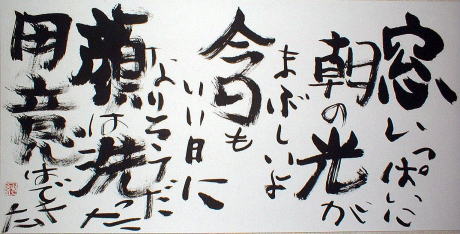 窓いっぱいに
朝の光が
まぶしいよ
今日も
いい日に
なりそうだ
顔は洗った
用意はできた